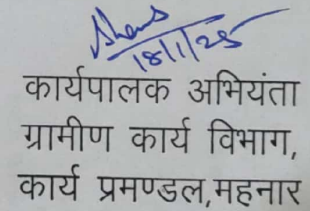 18/1/25
कार्यपालक अभियंता
ग्रामीण कार्य विभाग,
कार्य प्रमण्डल,महनार